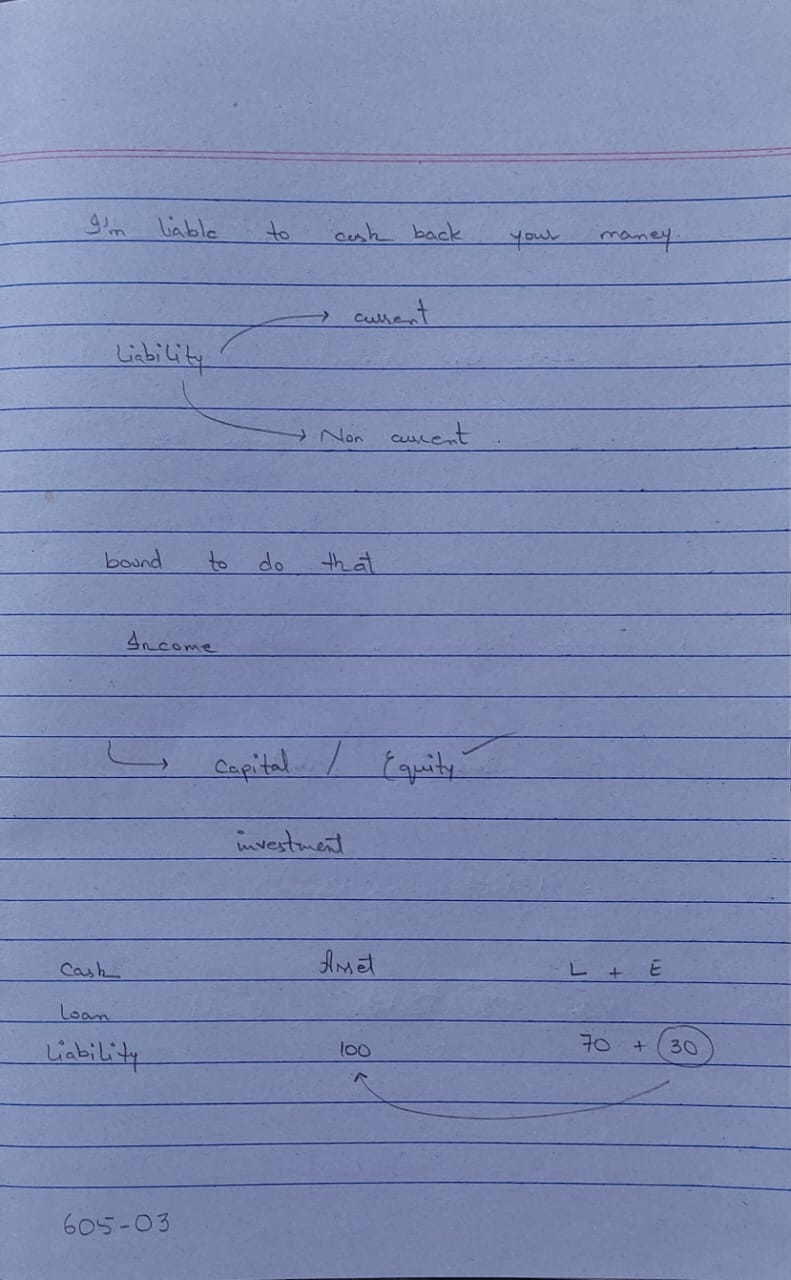 I'm liable to cash back your maney.
→ current
Liability
→ Non current .
bound to do that
Income
↳ Capital / Equity ✓
investment
Cash Asset L + E
Loan
Liability 100 70 + 30
605-03